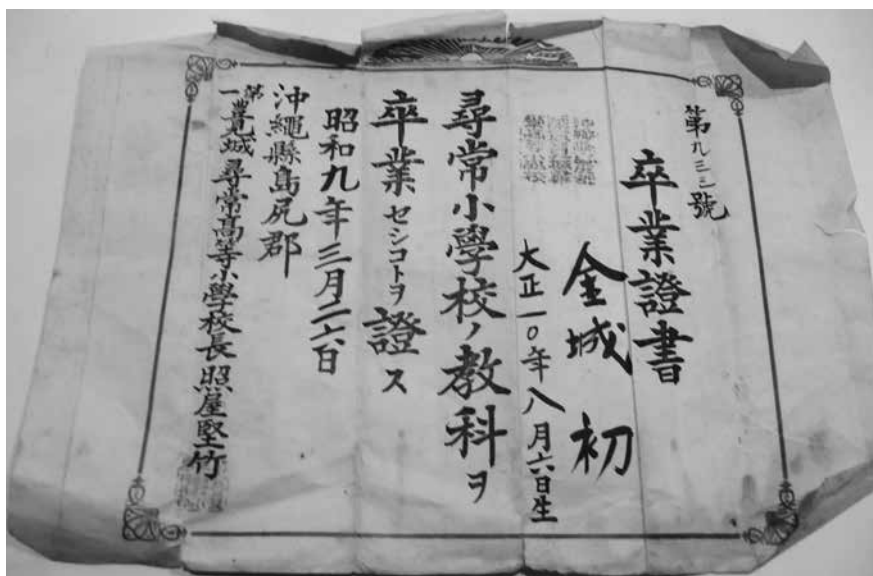 第九三三號
卒業證書
金城初
大正一〇年八月六日生
尋常小學校ノ教科ヲ
卒業セシコトヲ證ス
昭和九年三月二六日
沖繩縣島尻郡
第一豊見城尋常高等小學校長照屋堅竹